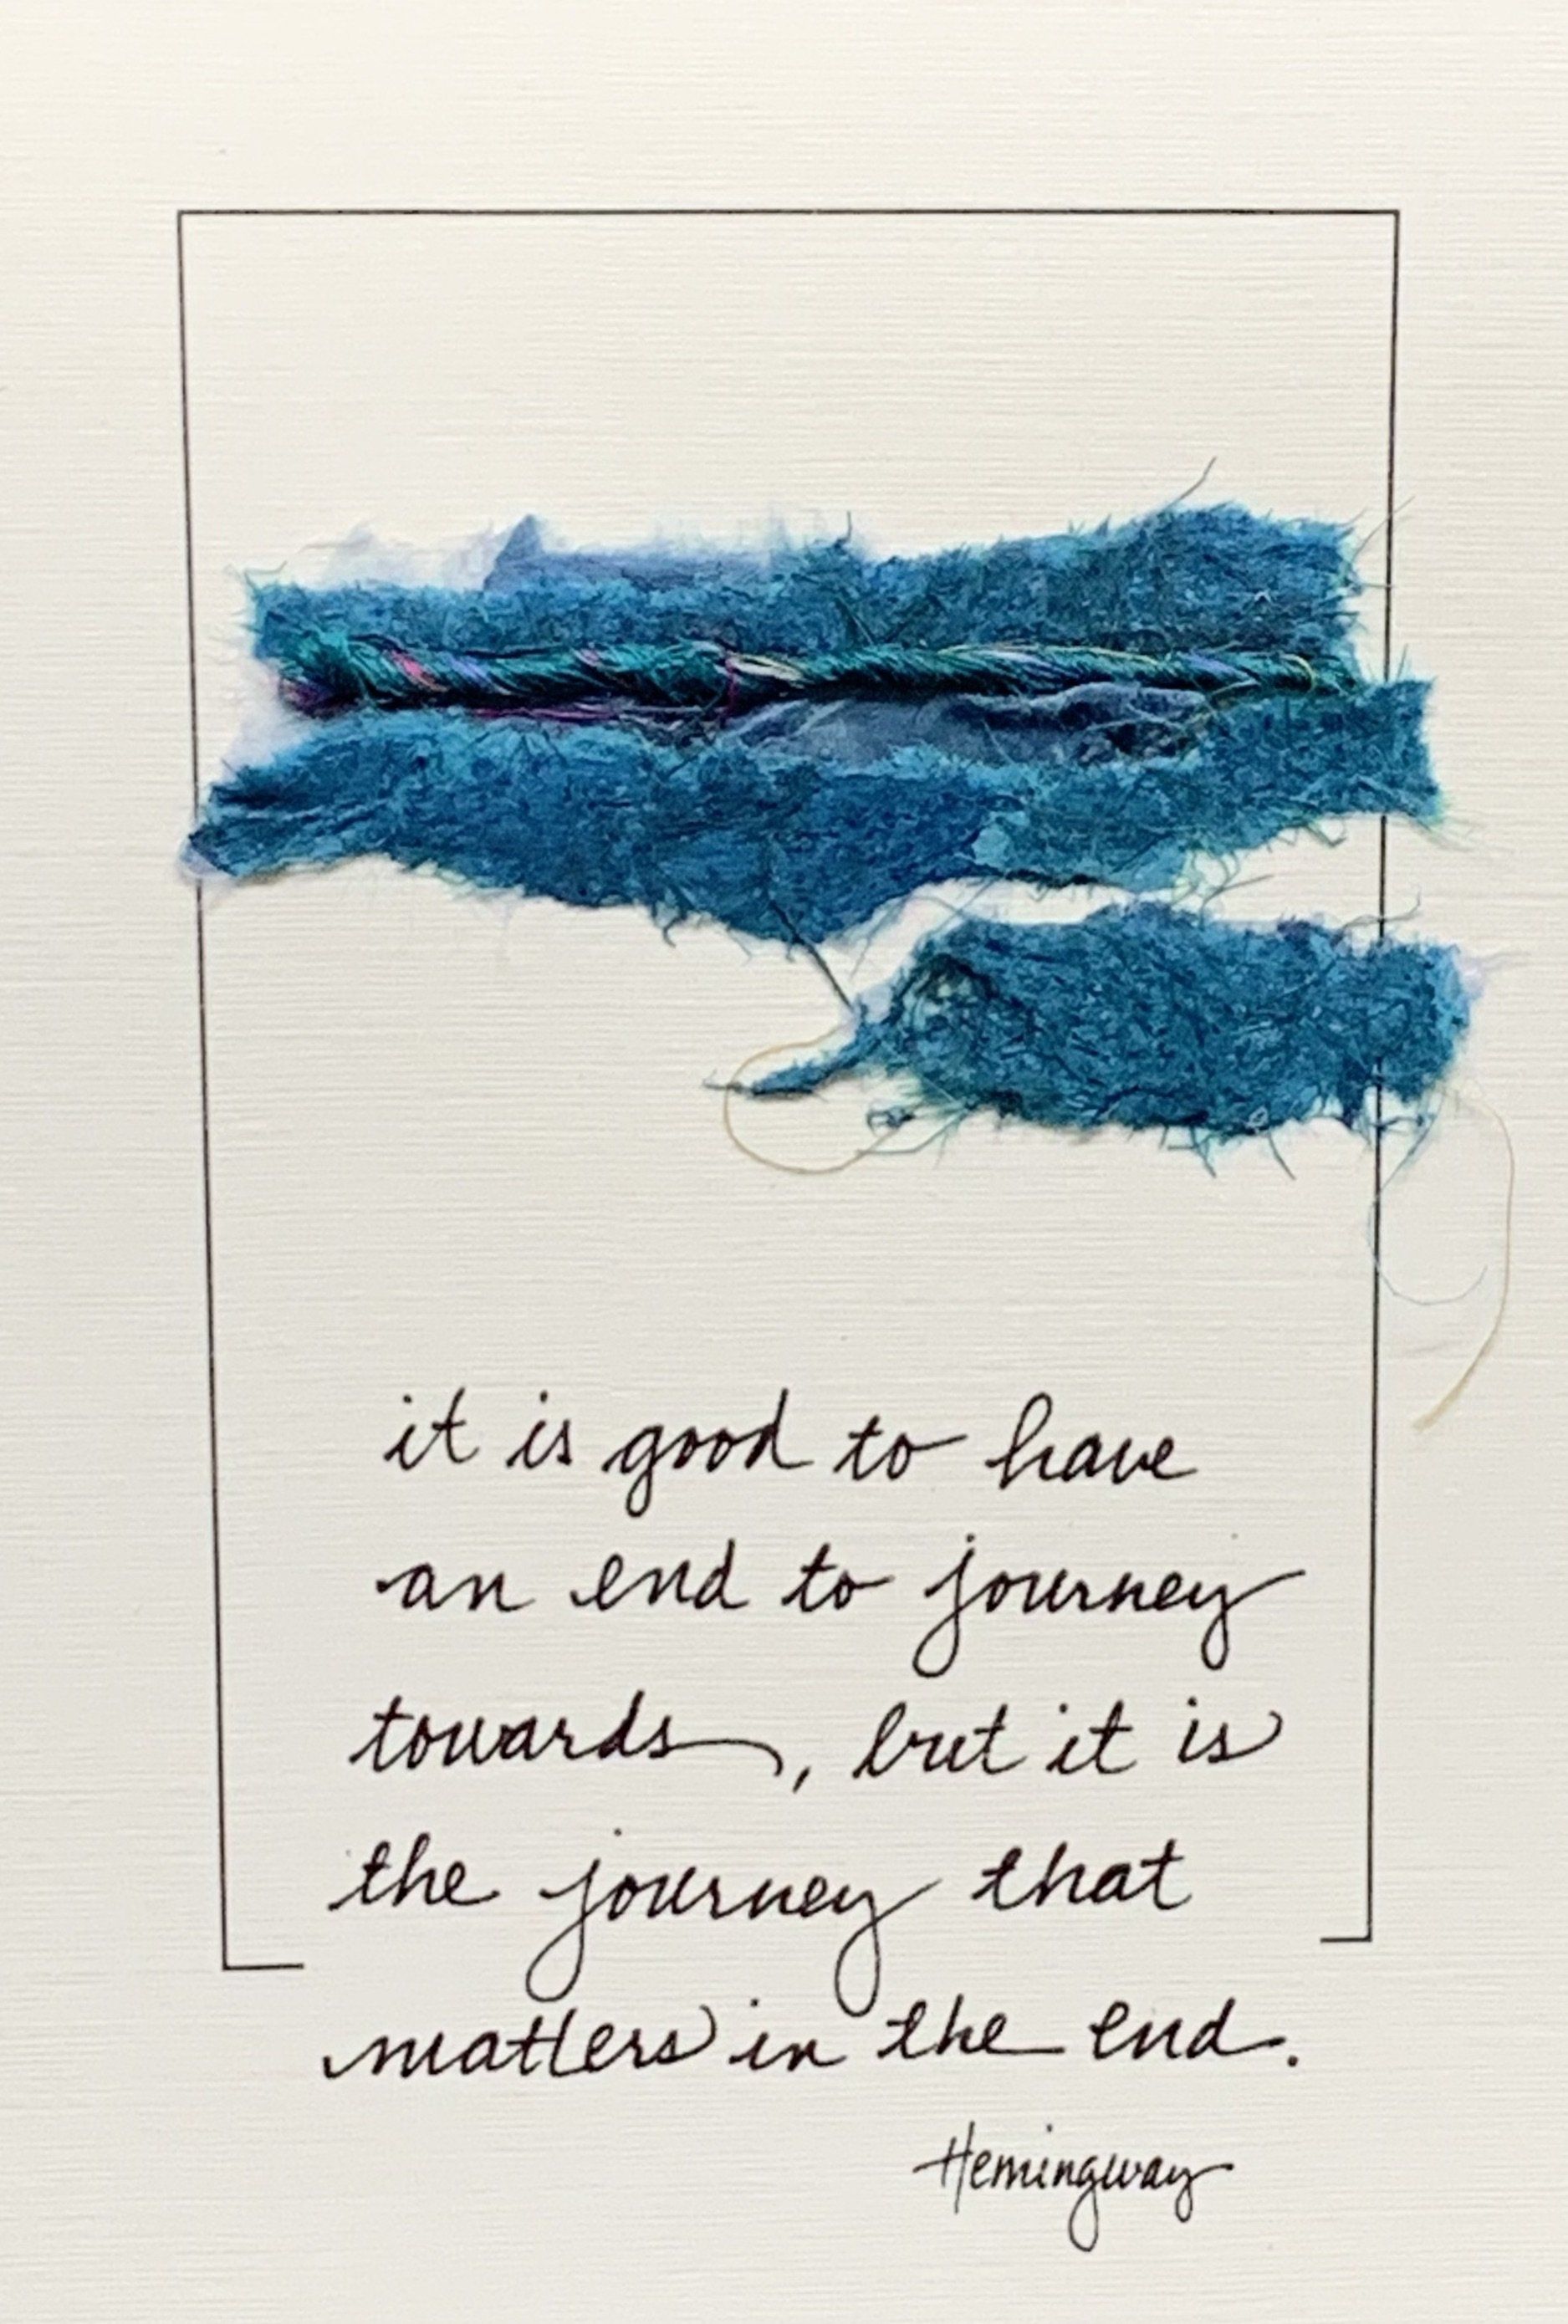 it is good to have
an end to journey
towards, but it is
the journey that
matters in the end.
Hemingway